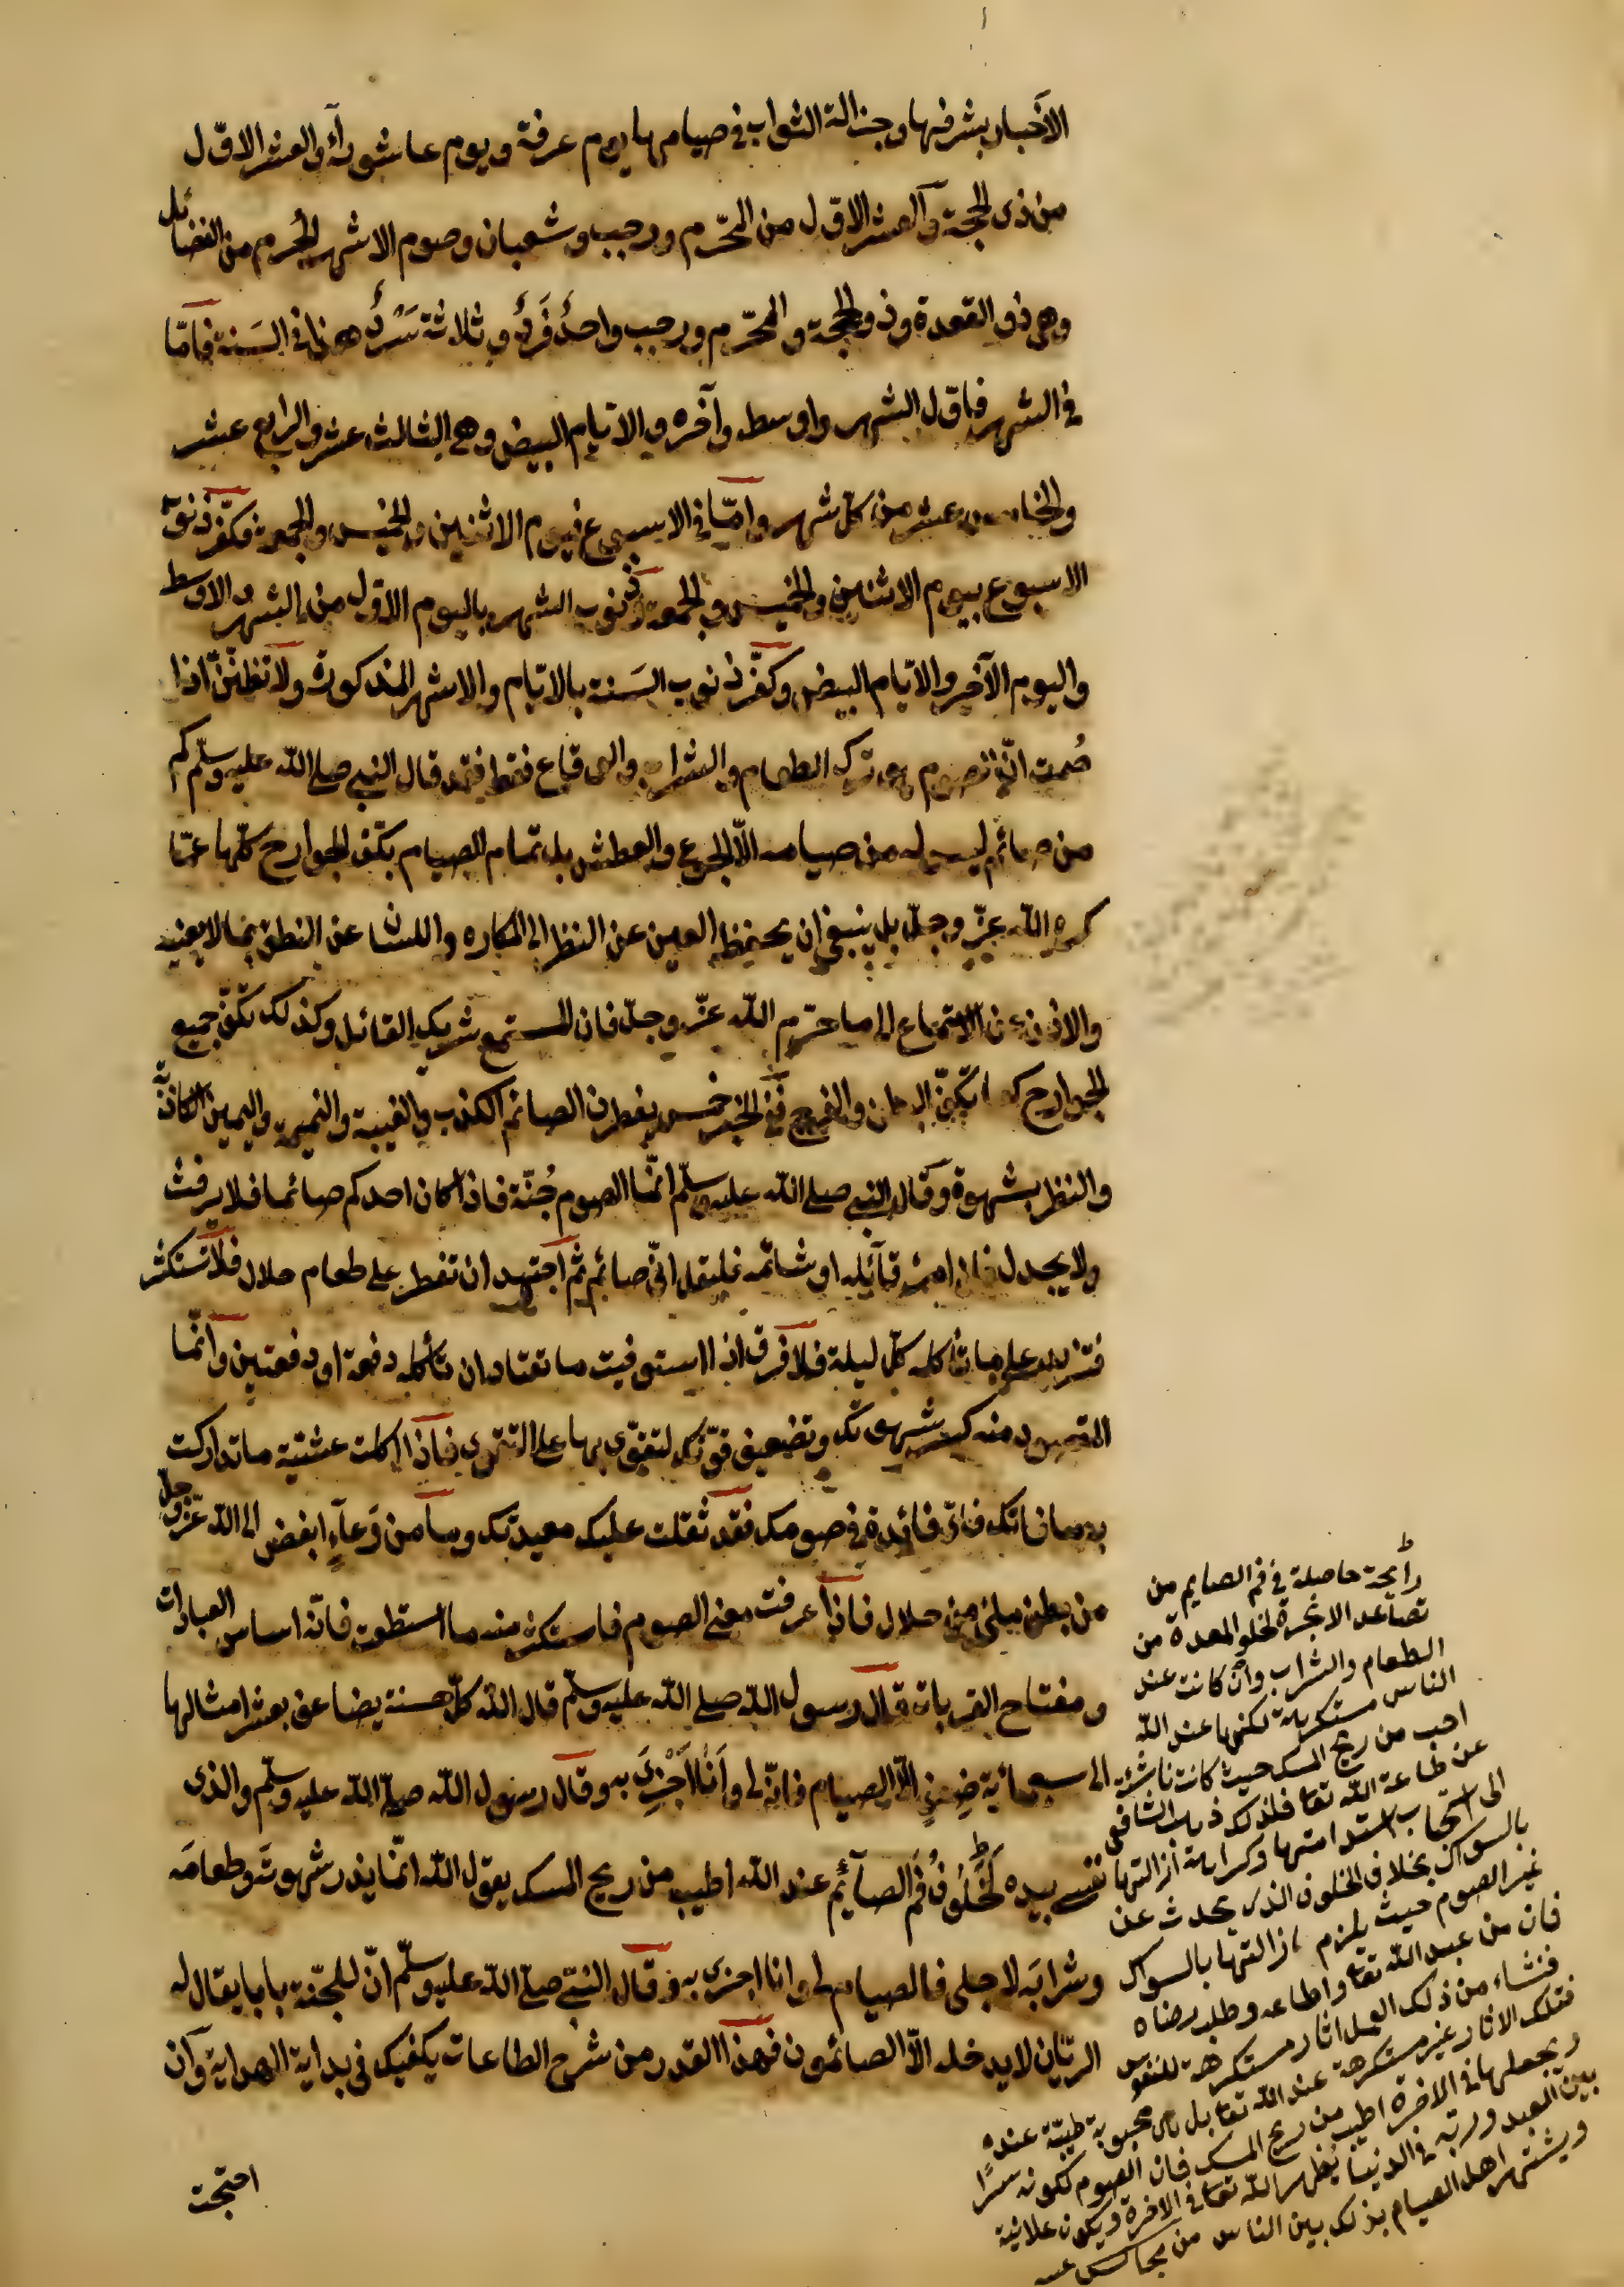 الاخبار بشرفها وجزالة الثواب في صيامها يوم عرفة ويوم عاشوراء والعشر الاوّل
من ذى الحجة والعشر الاوّل من المحرّم ورجب وشعبان وصوم الاشهر الحُرم من الفضائل
وهى ذو القعدة وذو الحجة والمحرّم ورجب واحدٌ فَردٌ وثلاثة سَرْدٌ هذا في السَنة فامّا
في الشهر فاوّل الشهر واوسطه وآخره والايّام البيض وهى الثالث عشر والرابع عشر
والخامس عشر من كلّ شهر وامّا في الاسبوع فيوم الاثنين والخميس والجمعة فكفّر ذنوب
الاسبوع بيوم الاثنين والخميس والجمعة وذنوب الشهر باليوم الاوّل من الشهر والاوسط
واليوم الآخر والايّام البيض وكفّر ذنوب السَنة بالايّام والاشهر المذكورة ولا تظنّنّ اذا
صُمت انّ الصوم هو ترك الطعام والشراب والوقاع فقط فقد قال النبي صلى الله عليه وسلّم كم
من صائم ليس له من صيامه الاّ الجوع والعطش بل تمام الصيام بكفّ الجوارح كلّها عمّا
كره الله عزّ وجلّ بل ينبغي ان يحفظ العين عن النظر الى المكاره واللسان عن النطق بما لا يعنيه
والاذن عن الاستماع الى ما حرّم الله عزّ وجلّ فان المستمع شريك القائل وكذلك تكفّ جميع
الجوارح كما تكفّ البطن والفرج ففي الخبر خمس يفطرن الصائم الكذب والغيبة والنميمة واليمين الكاذبة
والنظر بشهوة وقال النبي صلى الله عليه وسلّم انّما الصوم جُنّة فاذا كان احدكم صائما فلا يرفث
ولا يجدل فان امرء قاتله او شاتمه فليقل انّى صائم ثم اجتهد ان تفطر على طعام حلال فلا تستكثر
فتزيد على ما تأكله كلّ ليلة فلا فرق اذا استوفيت ما تعتاد ان تأكله دفعة او دفعتين وانّما
المقصود منه كسر شهوتك وتضعيف قوّتك لتقوى بها على التقوى فاذا اكلت عشيّة ما تداركت
به ما فاتك فاىّ فائدة في صومك فقد ثقلت عليك معدتك وما من وَعآءٍ ابغض الى الله عزّ وجلّ
من بطن ملئ من حلال فاذا عرفت معنى الصوم فاستكثر منه ما استطعت فانّه اساس العبادات
ومفتاح القربات قال رسول الله صلى الله عليه وسلّم قال الله كلّ حسنة يضاعف بعشر امثالها
الى سبعمائة ضِعفٍ الاّ الصيام فانّه لى وأنا أَجْزِى به وقال رسول الله صلّى الله عليه وسلّم والذى
نفسى بيده لَخُلُوفُ فَم الصآئِم عند الله اطيب من ريح المسك يقول الله انّما يذر شهوته وطعامَه
وشرابَه لاجلى فالصيام لى وانا اجزى به وقال النبىّ صلّى الله عليه وسلّم انّ للجنّة بابا يقال له
الريّان لا يدخله الاّ الصائمون فهذا القدر من شرح الطاعات يكفيك في بداية الهداية وان
احتجت
رائحة حاصلة في فم الصايم من
تصاعد الابخرة لخلو المعدة من
الطعام والشراب وان كانت عند
الناس مستكرهة لكنها عند الله
احب من ريح المسك حيث كانت ناشئة
عن طاعة الله تعا فلذلك ذهب الشافعى
الى استحباب استدامتها وكراهة ازالتها
بالسواك بخلاف الخلوف الذى يحدث عن
غير الصوم حيث يلزم ازالتها بالسواك
فان من عبد الله تعا واطاعه وطلب رضاه
فنشاء من ذلك العمل اثار مستكرهة للنفوس
فتلك الاثار غير مستكرهة عند الله تعا بل هى محبوبة طيبّة عنده
ويجعلها في الاخرة اطيب من ريح المسك فان الصوم لكونه سرًا
بين العبد وربّه في الدنيا يُظهر الله تعا في الاخرة ويكون علانية
ويشتهر اهل الصيام بذلك بين الناس من